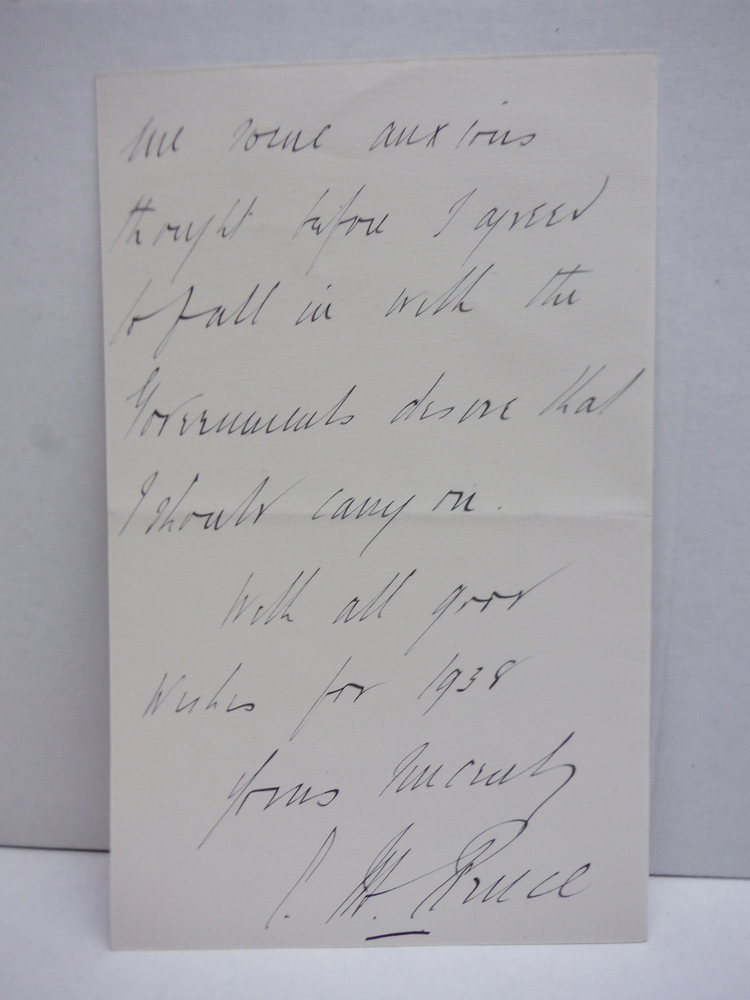 me some anxious
thought before I agreed
to fall in with the
Governments desire that
I should carry on.
With all good
Wishes for 1938
Yours sincerely
S. M. Bruce